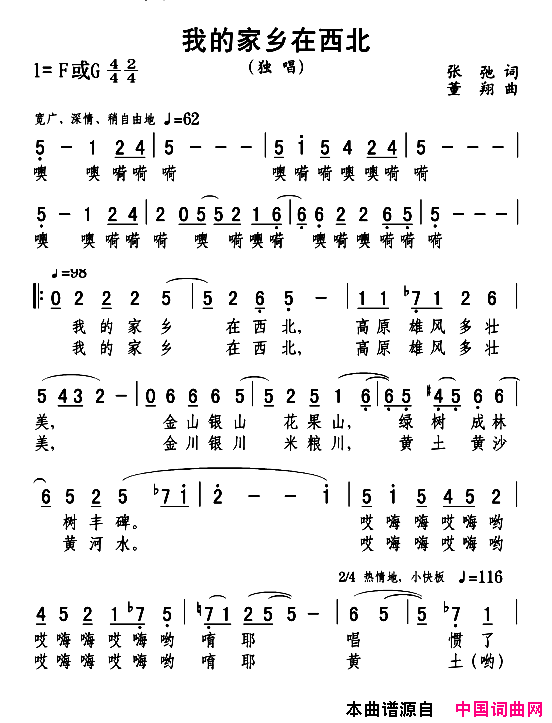 我的家乡在西北
(独 唱)
1= F或G 4/4 2/4
张 弛 词
董 翔 曲
宽广、深情、稍自由地 ♩=62
5 - 1 2 4 | 5 - - - | 5 i 5 2 4 | 5 - - - |
噢 噢嗬嗬 嗬 噢嗬嗬噢噢嗬 嗬
5 - 1 2 4 | 2 0 5 5 2 1 6 | 6 6 2 2 6 5 | 5 - - - |
噢 噢嗬嗬 嗬 噢 嗬噢嗬 噢嗬噢嗬嗬 嗬
♩=98
‖: 0 2 2 2 5 | 5 2 6 5 - | 1 1 ♭7 1 2 6 |
我 的 家 乡 在 西 北, 高 原 雄 风 多 壮
我 的 家 乡 在 西 北, 高 原 雄 风 多 壮
5 4 3 2 - | 0 6 6 6 5 | 2 2 5 1 6 | 6 5 #4 5 6 |
美, 金 山 银 山 花 果 山, 绿 树 成 林
美, 金 川 银 川 米 粮 川, 黄 土 黄 沙
6 5 2 5 ♭7 i | 2 - - i | 5 i 5 4 5 2 |
树 丰 碑。 哎 嗨 嗨 哎 嗨 哟
黄 河 水。 哎 嗨 嗨 哎 嗨 哟
2/4 热情地, 小快板 ♩=116
4 5 2 1 ♭7 5 | ♮7 1 2 5 5 | 5 - | 5 2 1 |
哎 嗨 嗨 哎 嗨 哟 唷 耶 唱 惯 了
哎 嗨 嗨 哎 嗨 哟 唷 耶 黄 土(哟)
本曲谱源自 中国词曲网